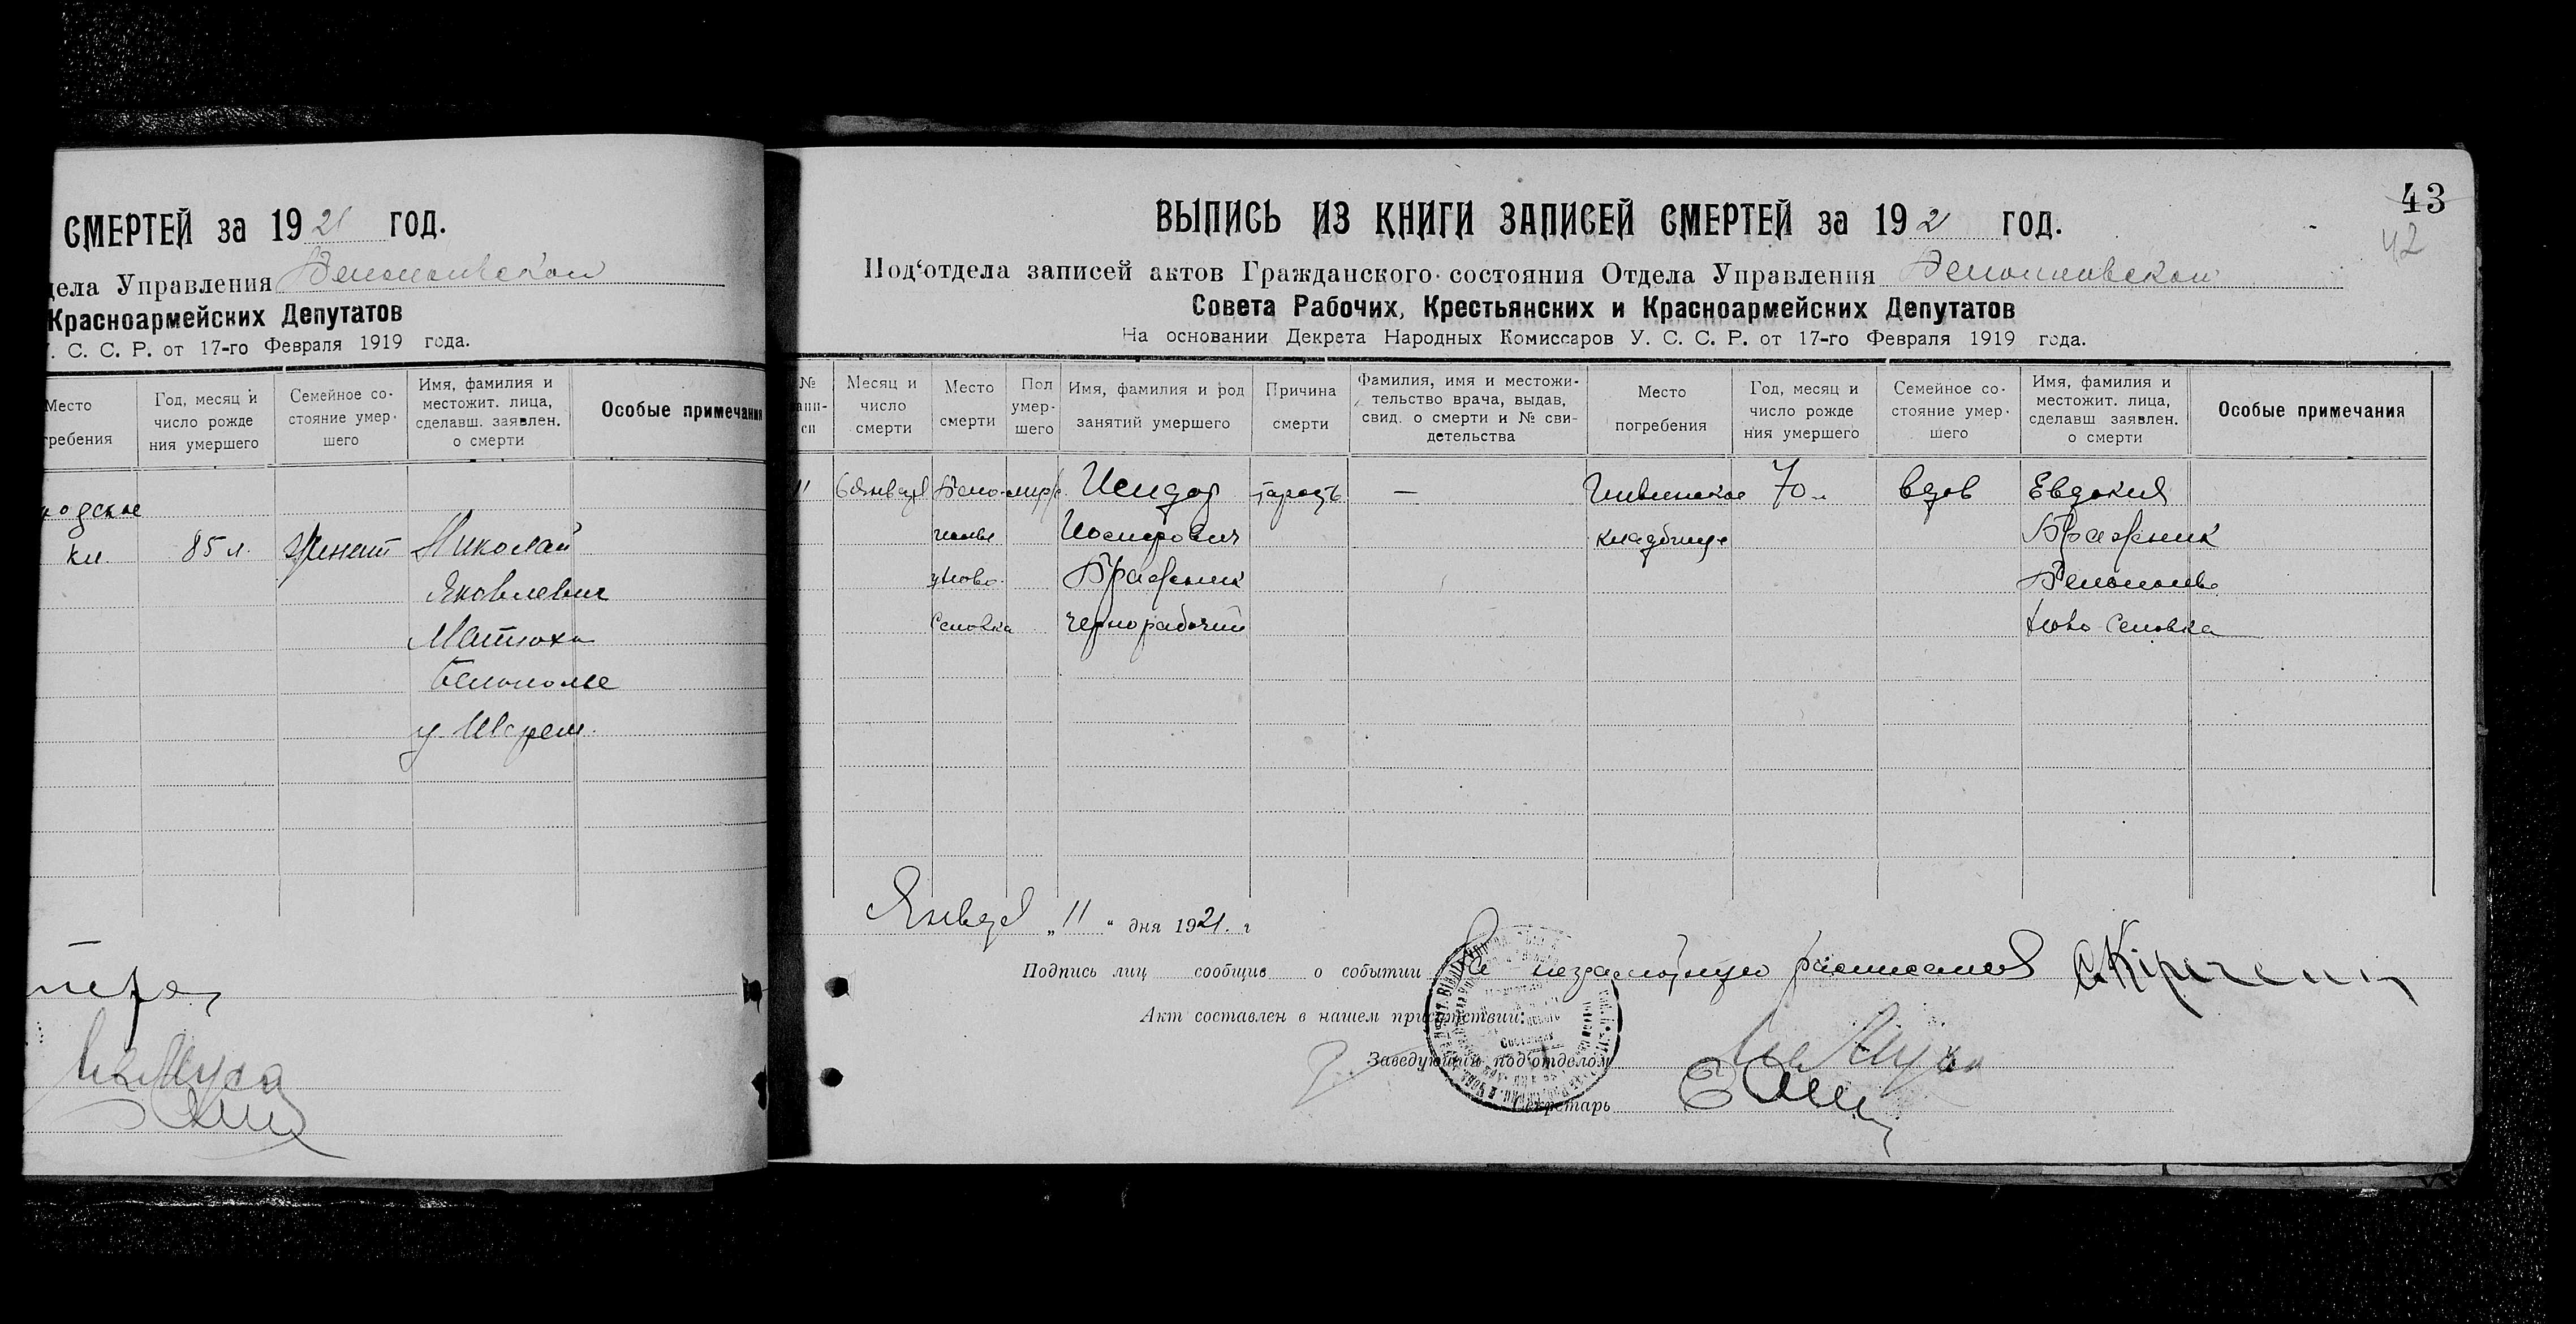 СМЕРТЕЙ за 1921 ГОД.
дела Управления Белопольской
Красноармейских Депутатов
У. С. С. Р. от 17-го Февраля 1919 года.
Место
гребения
Год, месяц и
число рожде
ния умершего
Семейное со-
стояние умер-
шего
Имя, фамилия и
местожит. лица,
сделавш. заявлен.
о смерти
Особые примечания
родское
кл. 85 л. женат Николай
Яковлевич
Матюха
Белополье
43
42
ВЫПИСЬ ИЗ КНИГИ ЗАПИСЕЙ СМЕРТЕЙ за 1921 ГОД.
Под‘отдела записей актов Гражданского состояния Отдела Управления Белопольской
Совета Рабочих, Крестьянских и Красноармейских Депутатов
На основании Декрета Народных Комиссаров У. С. С. Р. от 17-го Февраля 1919 года.
№
запи-
си
Месяц и
число
смерти
Место
смерти
Пол
умер-
шего
Имя, фамилия и род
занятий умершего
Причина
смерти
Фамилия, имя и местожи-
тельство врача, выдав,
свид. о смерти и № сви-
детельства
Место
погребения
Год, месяц и
число рожде
ния умершего
Семейное со-
стояние умер-
шего
Имя, фамилия и
местожит. лица,
сделавш заявлен.
о смерти
Особые примечания
11 6 Января Бело- муж. Исидор — 70 л. вдов Евдокия
полье Иосифович кладбище Бражник
Ново Бражник Белополье
Селовка чернорабочий Ново Селовка
Января „ 11 “ дня 1921 г
Подпись лиц сообщив о событии За неграмотную расписался
Акт составлен в нашем присутствии:
Заведующий под‘отделом
Секретарь